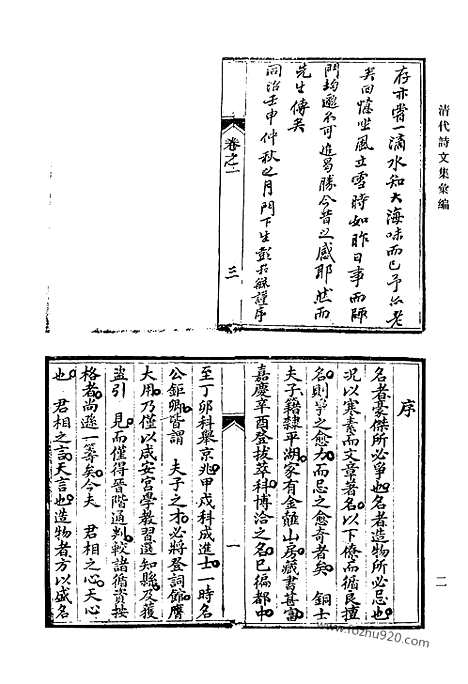 清代詩文集彙編
存亦嘗一滴水知大海味而已予亦老
矣回憶坐風立雪時如昨日事而師
門均邈不可追曷勝今昔之感耶然而
先生傳矣
同治壬申仲秋之月門下生彭
謹序
卷之一
三
二
序
名者豪傑所必爭也名者造物所必忌也
況以寒素而文章著名以下僚而循良擅
名則爭之愈力而忌之愈奇者矣 銅士
夫子籍隸平湖家有金雖山房藏書甚富
嘉慶辛酉登拔萃科博洽之名已徧都中
一
至丁卯科舉京兆甲戌科成進士一時名
公鉅卿皆謂 夫子之才必將登詞館膺
大用乃僅以咸安宮學教習選知縣及獲
盜引 見而僅得晉階通判較諸循資按
格者尚遜一籌矣今夫 君相之心天心
也 君相之言天言也造物者方以盛名
www.fozhu920.com